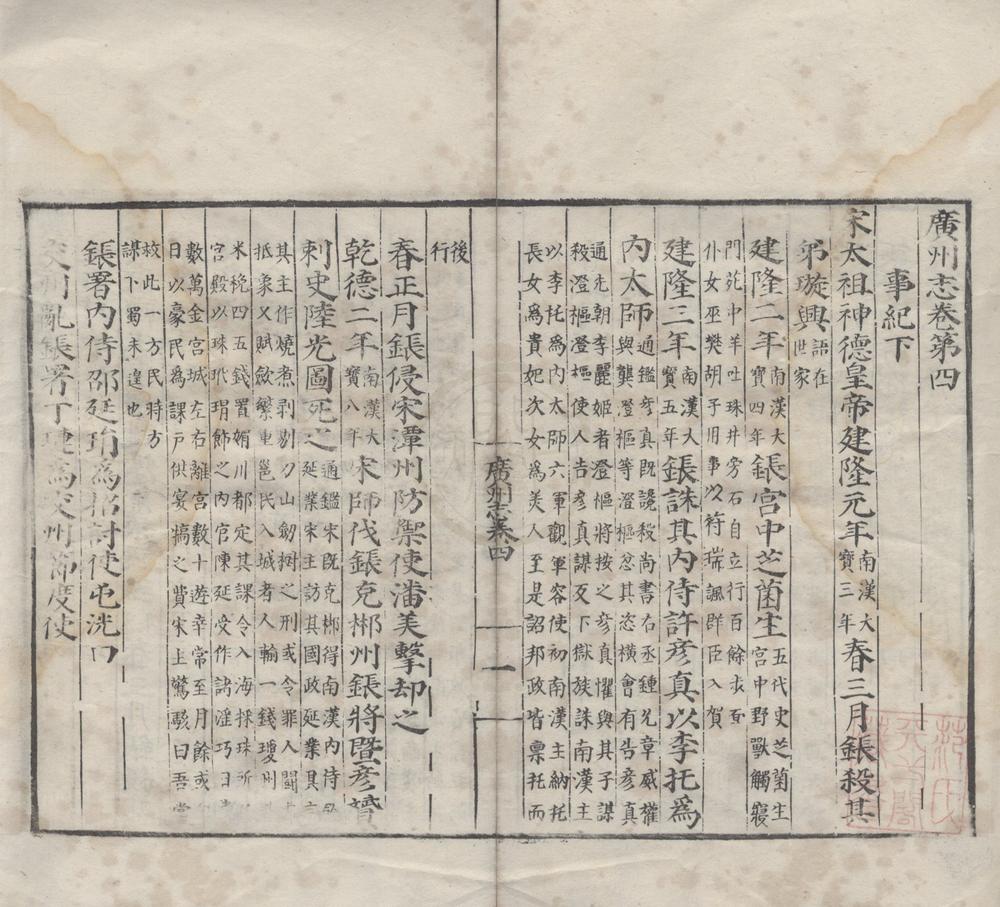 廣州志卷第四
事紀下
宋太祖神德皇帝建隆元年南漢大寶三年春三月鋹殺其
弟璇興語在世家
建隆二年南漢大寶四年鋹宮中芝菌生五代史芝菌生宮中野獸觸寢
門苑中羊吐珠井旁石自立行百餘步而
仆女巫樊胡子用事以符瑞諷群臣入賀
建隆三年南漢大寶五年鋹誅其內侍許彦真以李托爲
內太師通鑑彦真既譖殺尚書右丞鍾允章威權
與龔澄樞等澄樞忿其恣橫會有告彦真
通先朝李麗姬者澄樞將按之彦真懼與其子謀
殺澄樞澄樞使人告彦真謀反下獄族誅南漢主
以李托爲內太師六軍觀軍容使初南漢主納托
長女爲貴妃次女爲美人至是詔邦政皆禀托而
廣州志卷四
一
後
行
春正月鋹侵宋潭州防禦使潘美擊却之
乾德二年南漢大寶八年宋師伐鋹克郴州鋹將暨彦贇
刺史陸光圖死之通鑑宋既克郴得南漢内侍
延業宋主訪其國政延業具言
其主作燒煮剥剔刀山劒樹之刑或令罪人鬭
抵象又賦斂繁重邕民入城者人輸一錢瓊州
米稅四五錢置媚川都定其課令入海採珠所
宮殿以珠玳瑁飾之内官陳延受作諸淫巧日
數萬金宮城左右離宮數十遊幸常至月餘或
日以豪民爲課户供宴犒之費宋主驚駭曰吾當
救此一方民時方
謀下蜀未遑也
鋹署内侍邵廷琄爲招討使屯洸口
交州亂鋹署丁璉爲交州節度使